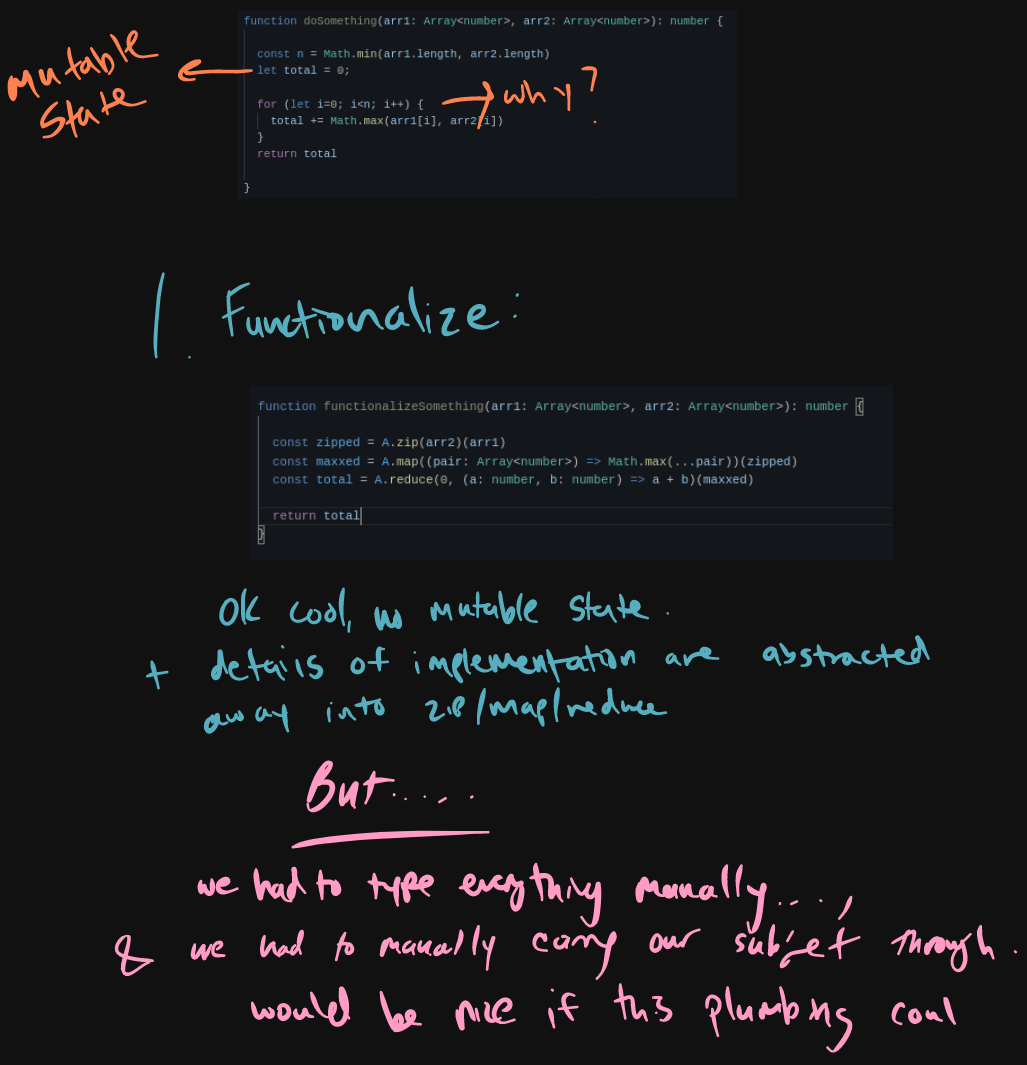 function doSomething(arr1: Array<number>, arr2: Array<number>): number {
const n = Math.min(arr1.length, arr2.length)
let total = 0;
Mutable
State
for (let i=0; i<n; i++) {
why?
total += Math.max(arr1[i], arr2[i])
}
return total
}
1. Functionalize:
function functionalizeSomething(arr1: Array<number>, arr2: Array<number>): number {
const zipped = A.zip(arr2)(arr1)
const maxxed = A.map((pair: Array<number>) => Math.max(...pair))(zipped)
const total = A.reduce(0, (a: number, b: number) => a + b)(maxxed)
return total
}
OK cool, no mutable state.
+ details of implementation are abstracted
away into zip/map/reduce
But.....
we had to type everything manually....,
& we had to manually carry our subject through.
would be nice if this plumbing coul